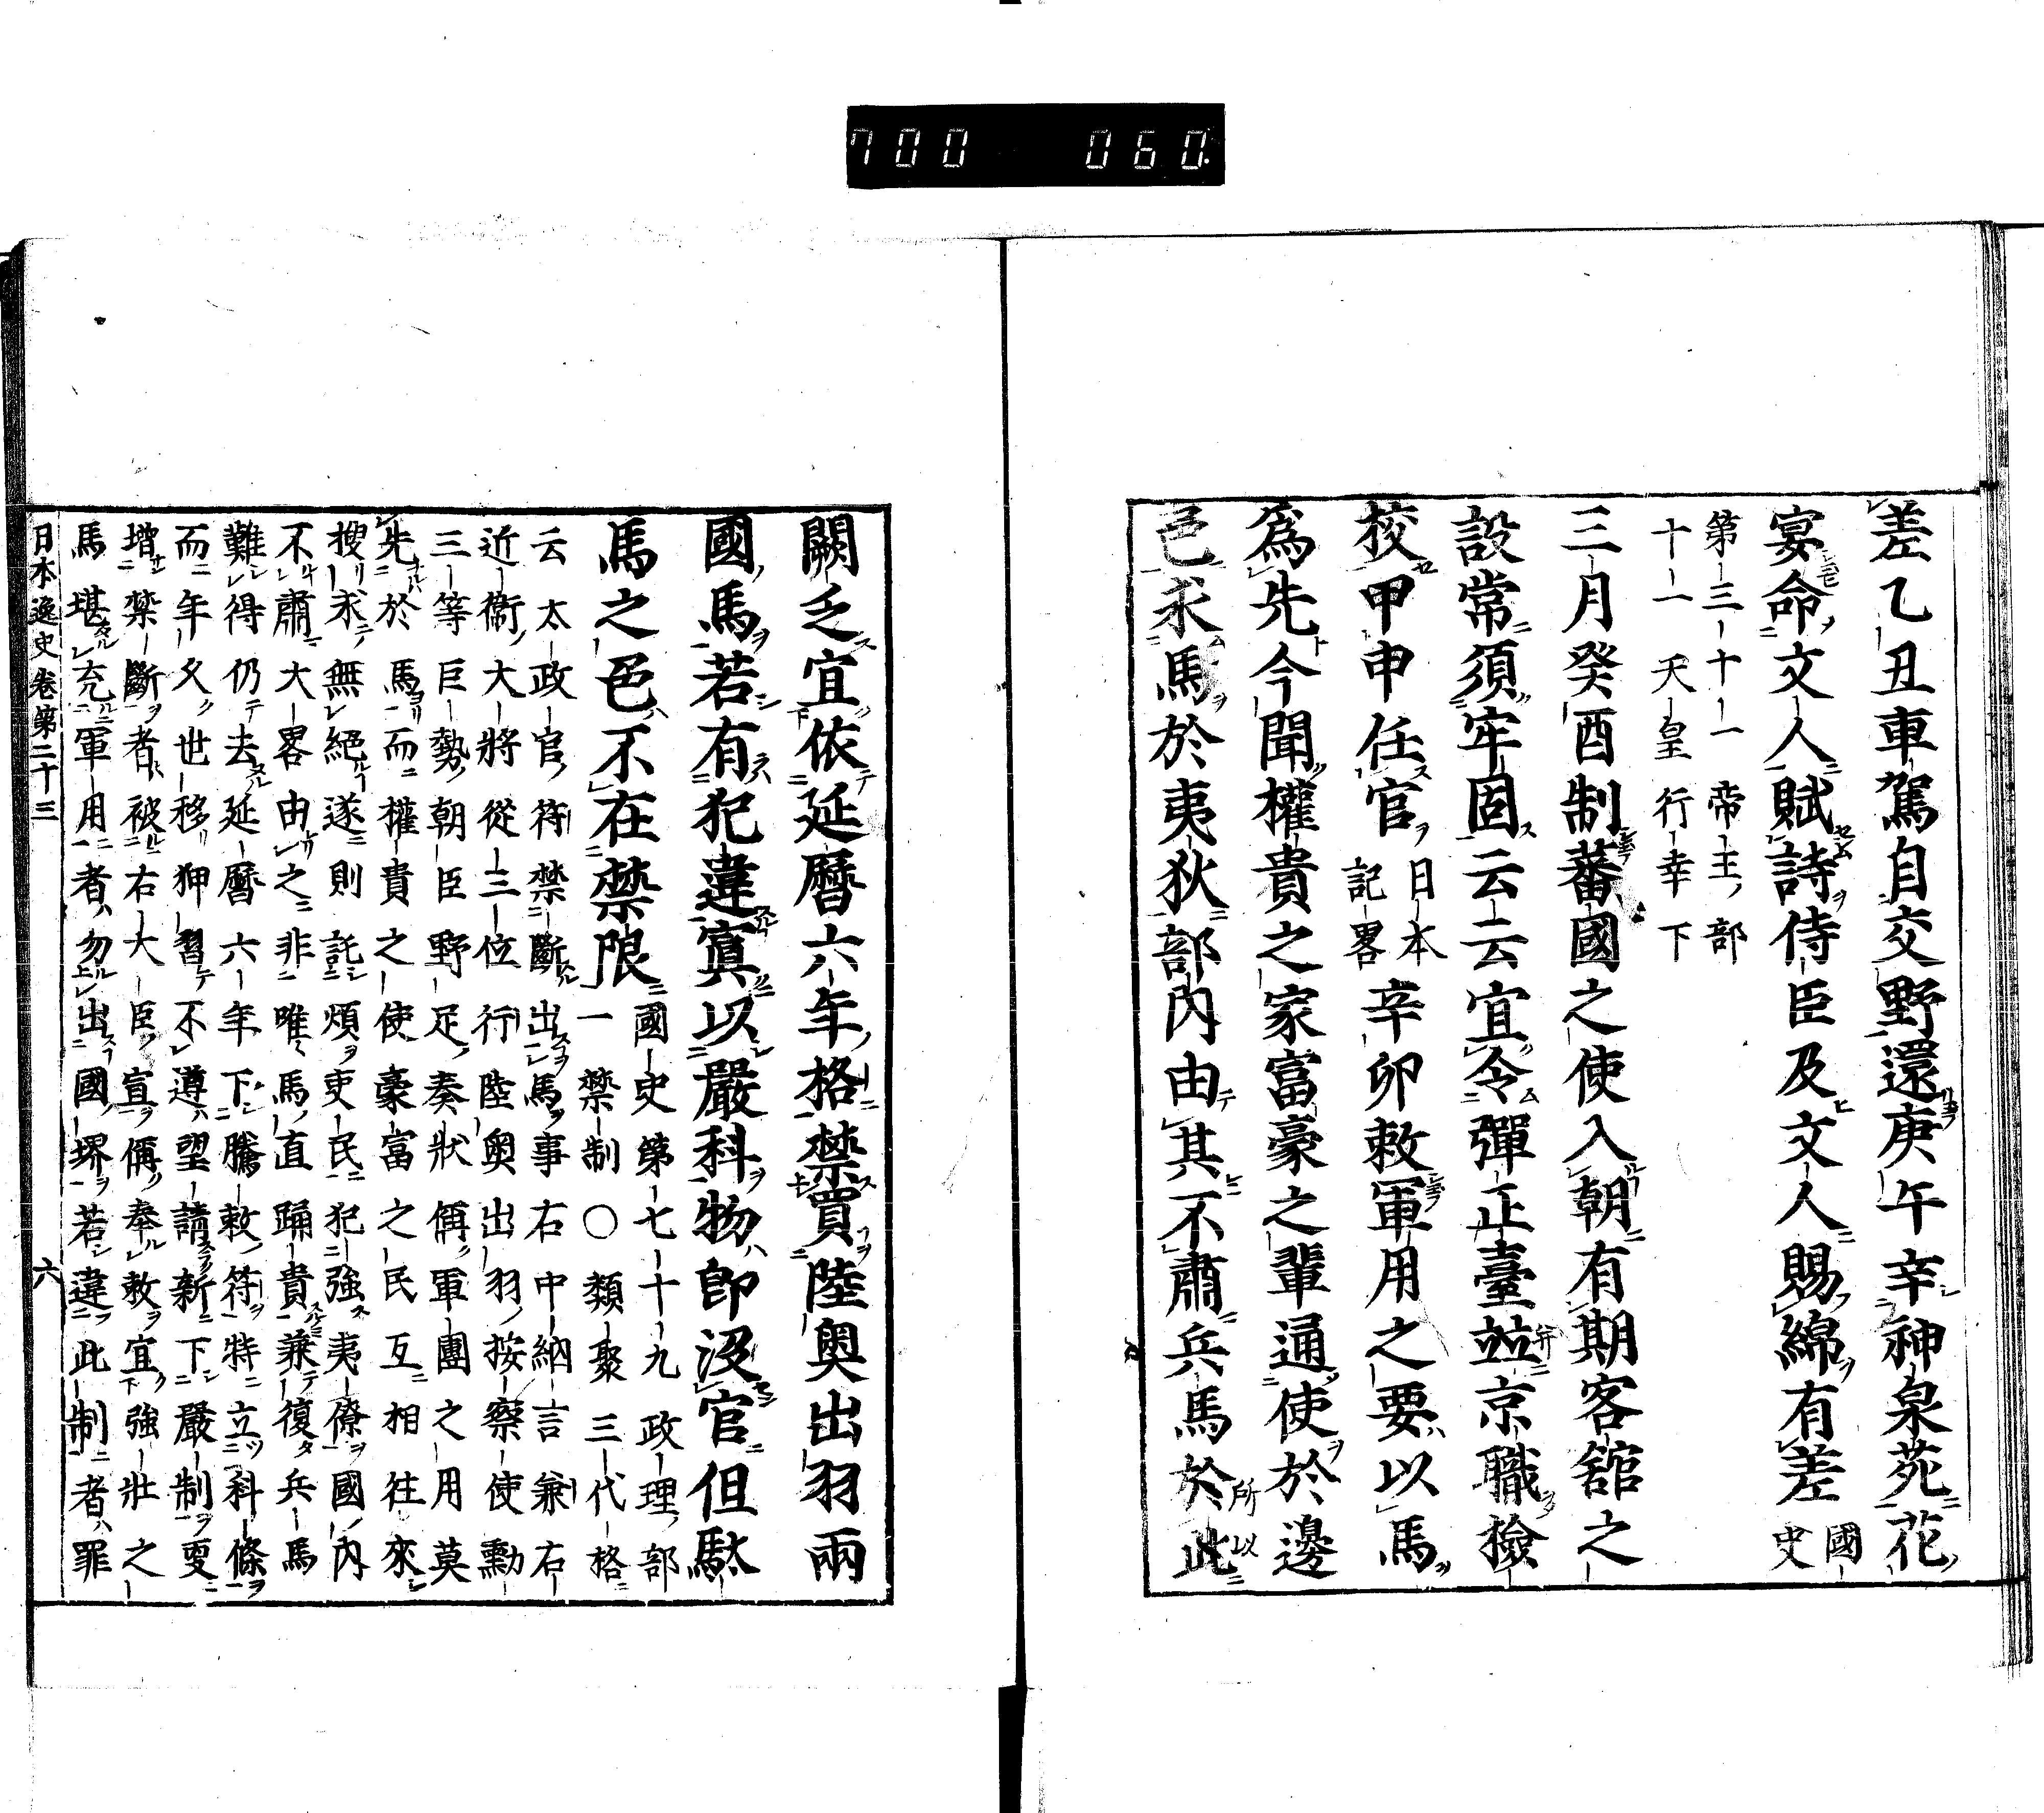 700 060.
差乙丑車駕自交野還庚午幸神泉苑花
宴命文人賦詩侍臣及文人賜綿有差國史
第三十一帝王部
十一天皇行幸下
三月癸酉制蕃國之使入朝有期客舘之
設常須牢固云云宜令彈正臺並京職撿
校甲申任官日本記畧辛卯敕軍用之要以馬
爲先今聞權貴之家富豪之輩通使於邊
邑求馬於夷狄部內由其不肅兵馬於此所以
闕乏宜依延曆六年格禁買陸奧出羽兩
國馬若有犯違寘以嚴科物即沒官但駄
馬之色不在禁限國史第七十九政理部
一禁制〇類聚三代格
云太政官符禁斷出馬事右中納言兼右
近衞大將從三位行陸奧出羽按察使勳
三等巨勢朝臣野足奏狀偁軍團之用莫
先於馬而權貴之使豪富之民互相往來
搜求無絕遂則託煩吏民犯強夷僚國內
不肅大畧由之非唯馬直踊貴兼復兵馬
難得仍去延曆六年下騰敕符特立科條
而年久世移狎習不遵望請新下嚴制更
增禁斷者被右大臣宣偁奉敕宜強壯之
馬堪充軍用者勿出國堺若違此制者罪
日本逸史卷第二十三 六